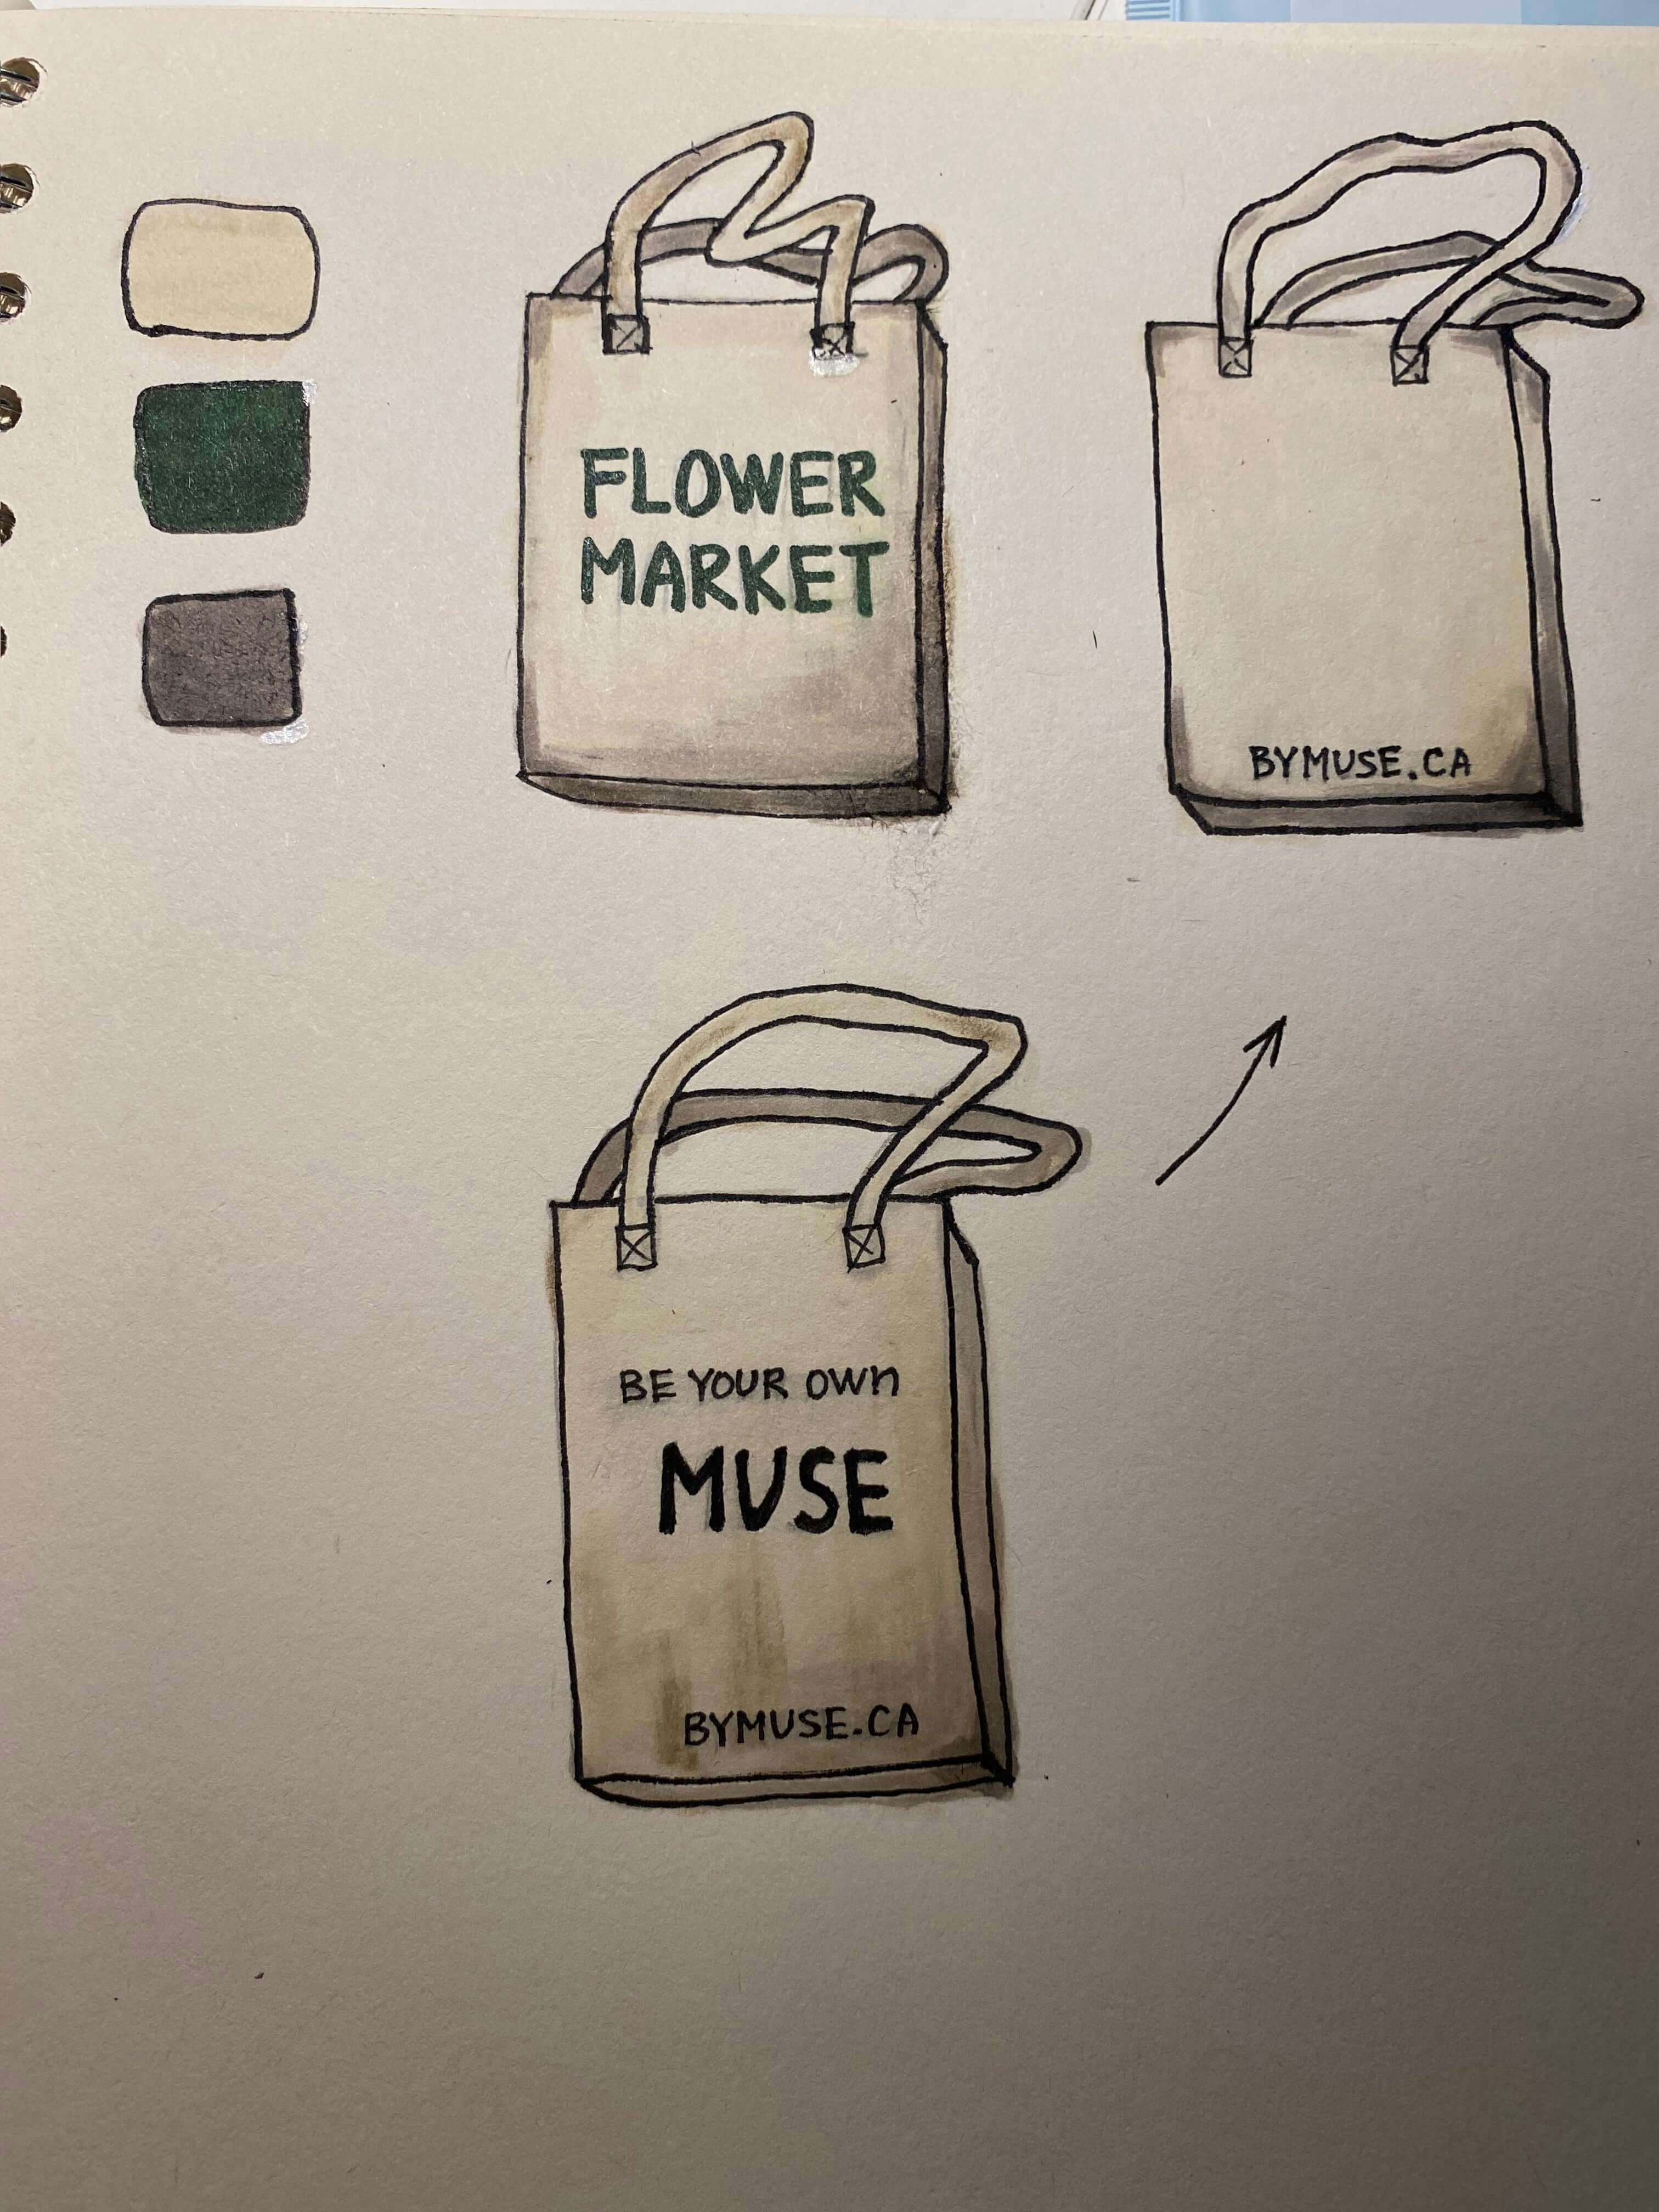 FLOWER
MARKET
BYMUSE.CA
BE YOUR OWn
MUSE
BYMUSE.CA